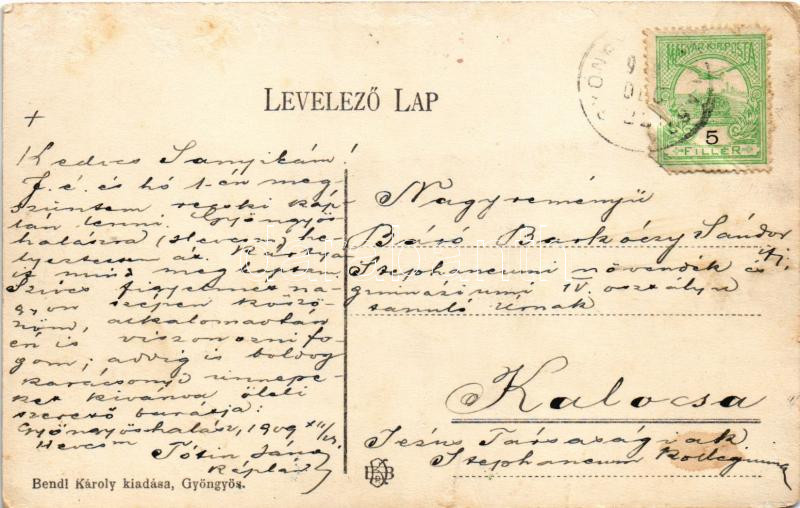 LEVELEZŐ LAP
MAGYAR KIR. POSTA
5
FILLÉR
+
Kedves Sanyikám!
F. é. és hó 1-én meg-
szüntem recski káp-
lán lenni. Gyöngyös-
halászra (Hevesm) he-
lyeztem át. Kártyá
it mind megkaptam
Szives figyelmét na-
gyon szépen köszö-
nöm, alkalomadtán
én is viszonozni fo-
gom; addig is boldog
karácsonyi ünnepe-
ket kivánva öleli
szerető barátja:
Gyöngyöshalász, 1909 XII/21.
Hevesm Tóth János
káplán
Nagyreményü
Báró Barkóczy Sándor ifj.
Stephaneumi növendék és
gymnáziumi IV. osztályu
tanuló Úrnak
Kalocsa
Jézus Társaságiak
Stephaneum Kollegium
Bendl Károly kiadása, Gyöngyös.